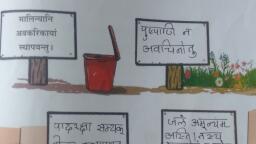 मालिन्यानि
अवकरिकायां
स्थापयन्तु।
पुष्पाणि न
अवचिनोतु
पादरक्षा सम्यक्
जलं अमूल्यम्
अस्ति।